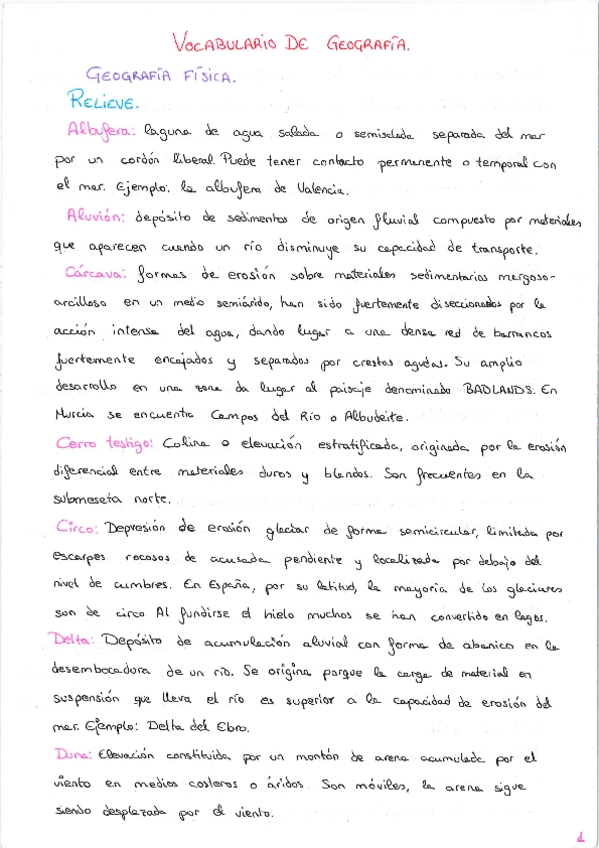 VOCABULARIO DE GEOGRAFÍA.
GEOGRAFÍA FÍSICA.
RELIEVE.
Albufera: laguna de agua salada o semisalada separada del mar
por un cordón liberal. Puede tener contacto permanente o temporal con
el mar. Ejemplo: la albufera de Valencia.
Aluvión: depósito de sedimentos de origen fluvial compuesto por materiales
que aparecen cuando un río disminuye su capacidad de transporte.
Cárcava: formas de erosión sobre materiales sedimentarios margoso-
arcilloso en un medio semiárido, han sido fuertemente diseccionados por la
acción intensa del agua, dando lugar a una densa red de barrancos
fuertemente encajados y separados por crestas agudas. Su amplio
desarrollo en una zona da lugar al paisaje denominado BADLANDS. En
Murcia se encuentra Campos del Río o Albudeite.
Cerro testigo: Colina o elevación estratificada, originada por la erosión
diferencial entre materiales duros y blandos. Son frecuentes en la
submeseta norte.
Circo: Depresión de erosión glaciar de forma semicircular, limitada por
escarpes rocosos de acusada pendiente y localizada por debajo del
nivel de cumbres. En España, por su latitud, la mayoría de los glaciares
son de circo Al fundirse el hielo muchos se han convertido en lagos.
Delta: Depósito de acumulación aluvial con forma de abanico en la
desembocadura de un río. Se origina porque la carga de material en
suspensión que lleva el río es superior a la capacidad de erosión del
mar. Ejemplo: Delta del Ebro.
Duna: Elevación constituida por un montón de arena acumulada por el
viento en medios costeros o áridos. Son móviles, la arena sigue
siendo desplazada por el viento.
1